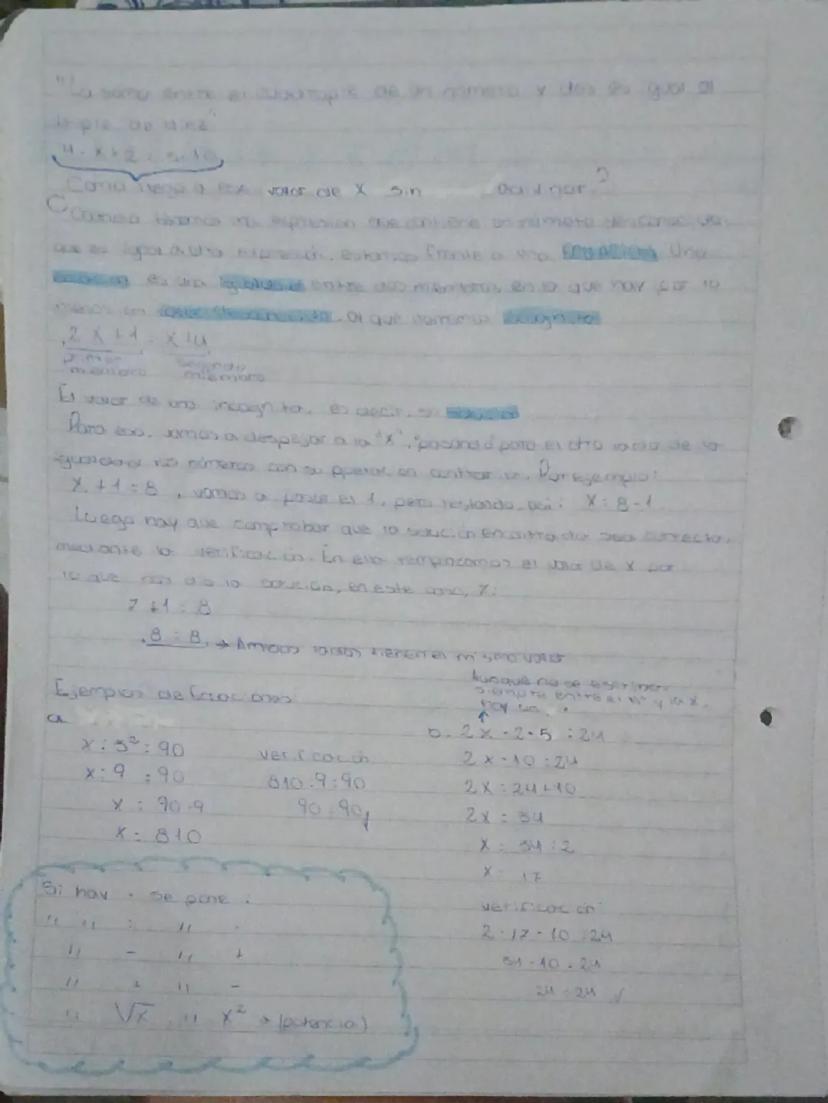 "La suma entre el cuadruple de un número y dos es igual al
triple de diez"
4 · x + 2 = 3 · 10
Como llego a ese valor de x sin adivinar?
Cuando tenemos una expresion que contiene un número desconocido
que es igual a otra expresión, estamos frente a una Ecuación. Una
ecuación es una igualdad entre dos miembros, en la que hay por lo
menos un valor desconocido, al que llamamos incognita
2x + 1 = x + 4
Primer miembro segundo miembro
El valor de una incognita, es decir, su solución
Para eso, vamos a despejar a la "x", "pasando" para el otro lado de la
igualdad los números con su operación contraria. Por ejemplo:
x + 1 = 8, vamos a pasar el 1, pero restando, así: x = 8 - 1
Luego hay que comprobar que la solución encontrada sea correcta,
mediante la verificación. En ella remplazamos el valor de x por
lo que nos dio la solución, en este caso, 7:
7 + 1 = 8
8 = 8 → Ambos lados tienen el mismo valor
Ejemplos de Ecuaciones:
a
x : 3² = 90
x : 9 = 90
x = 90 · 9
x = 810
verificación
810 : 9 = 90
90 = 90
Aunque no se escriba
siempre entre el n° y la x
hay un ·
b. 2x - 2 · 5 = 24
2x - 10 = 24
2x = 24 + 10
2x = 34
x = 34 : 2
x = 17
verificación
2 · 17 - 10 = 24
34 - 10 = 24
24 = 24 ✓
Si hay · se pone :
" " : " ·
" - " +
" + " -
" √x " x² → (potencia)